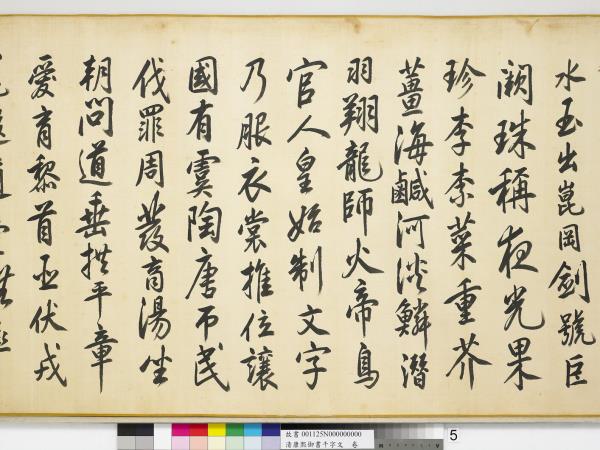 水玉出崑岡劍號巨
闕珠稱夜光果
珍李柰菜重芥
薑海鹹河淡鱗潛
羽翔龍師火帝鳥
官人皇始制文字
乃服衣裳推位讓
國有虞陶唐吊民
伐罪周發商湯坐
朝問道垂拱平章
愛育黎首臣伏戎
故書 001125N000000000
清康熙御書千字文 卷
5